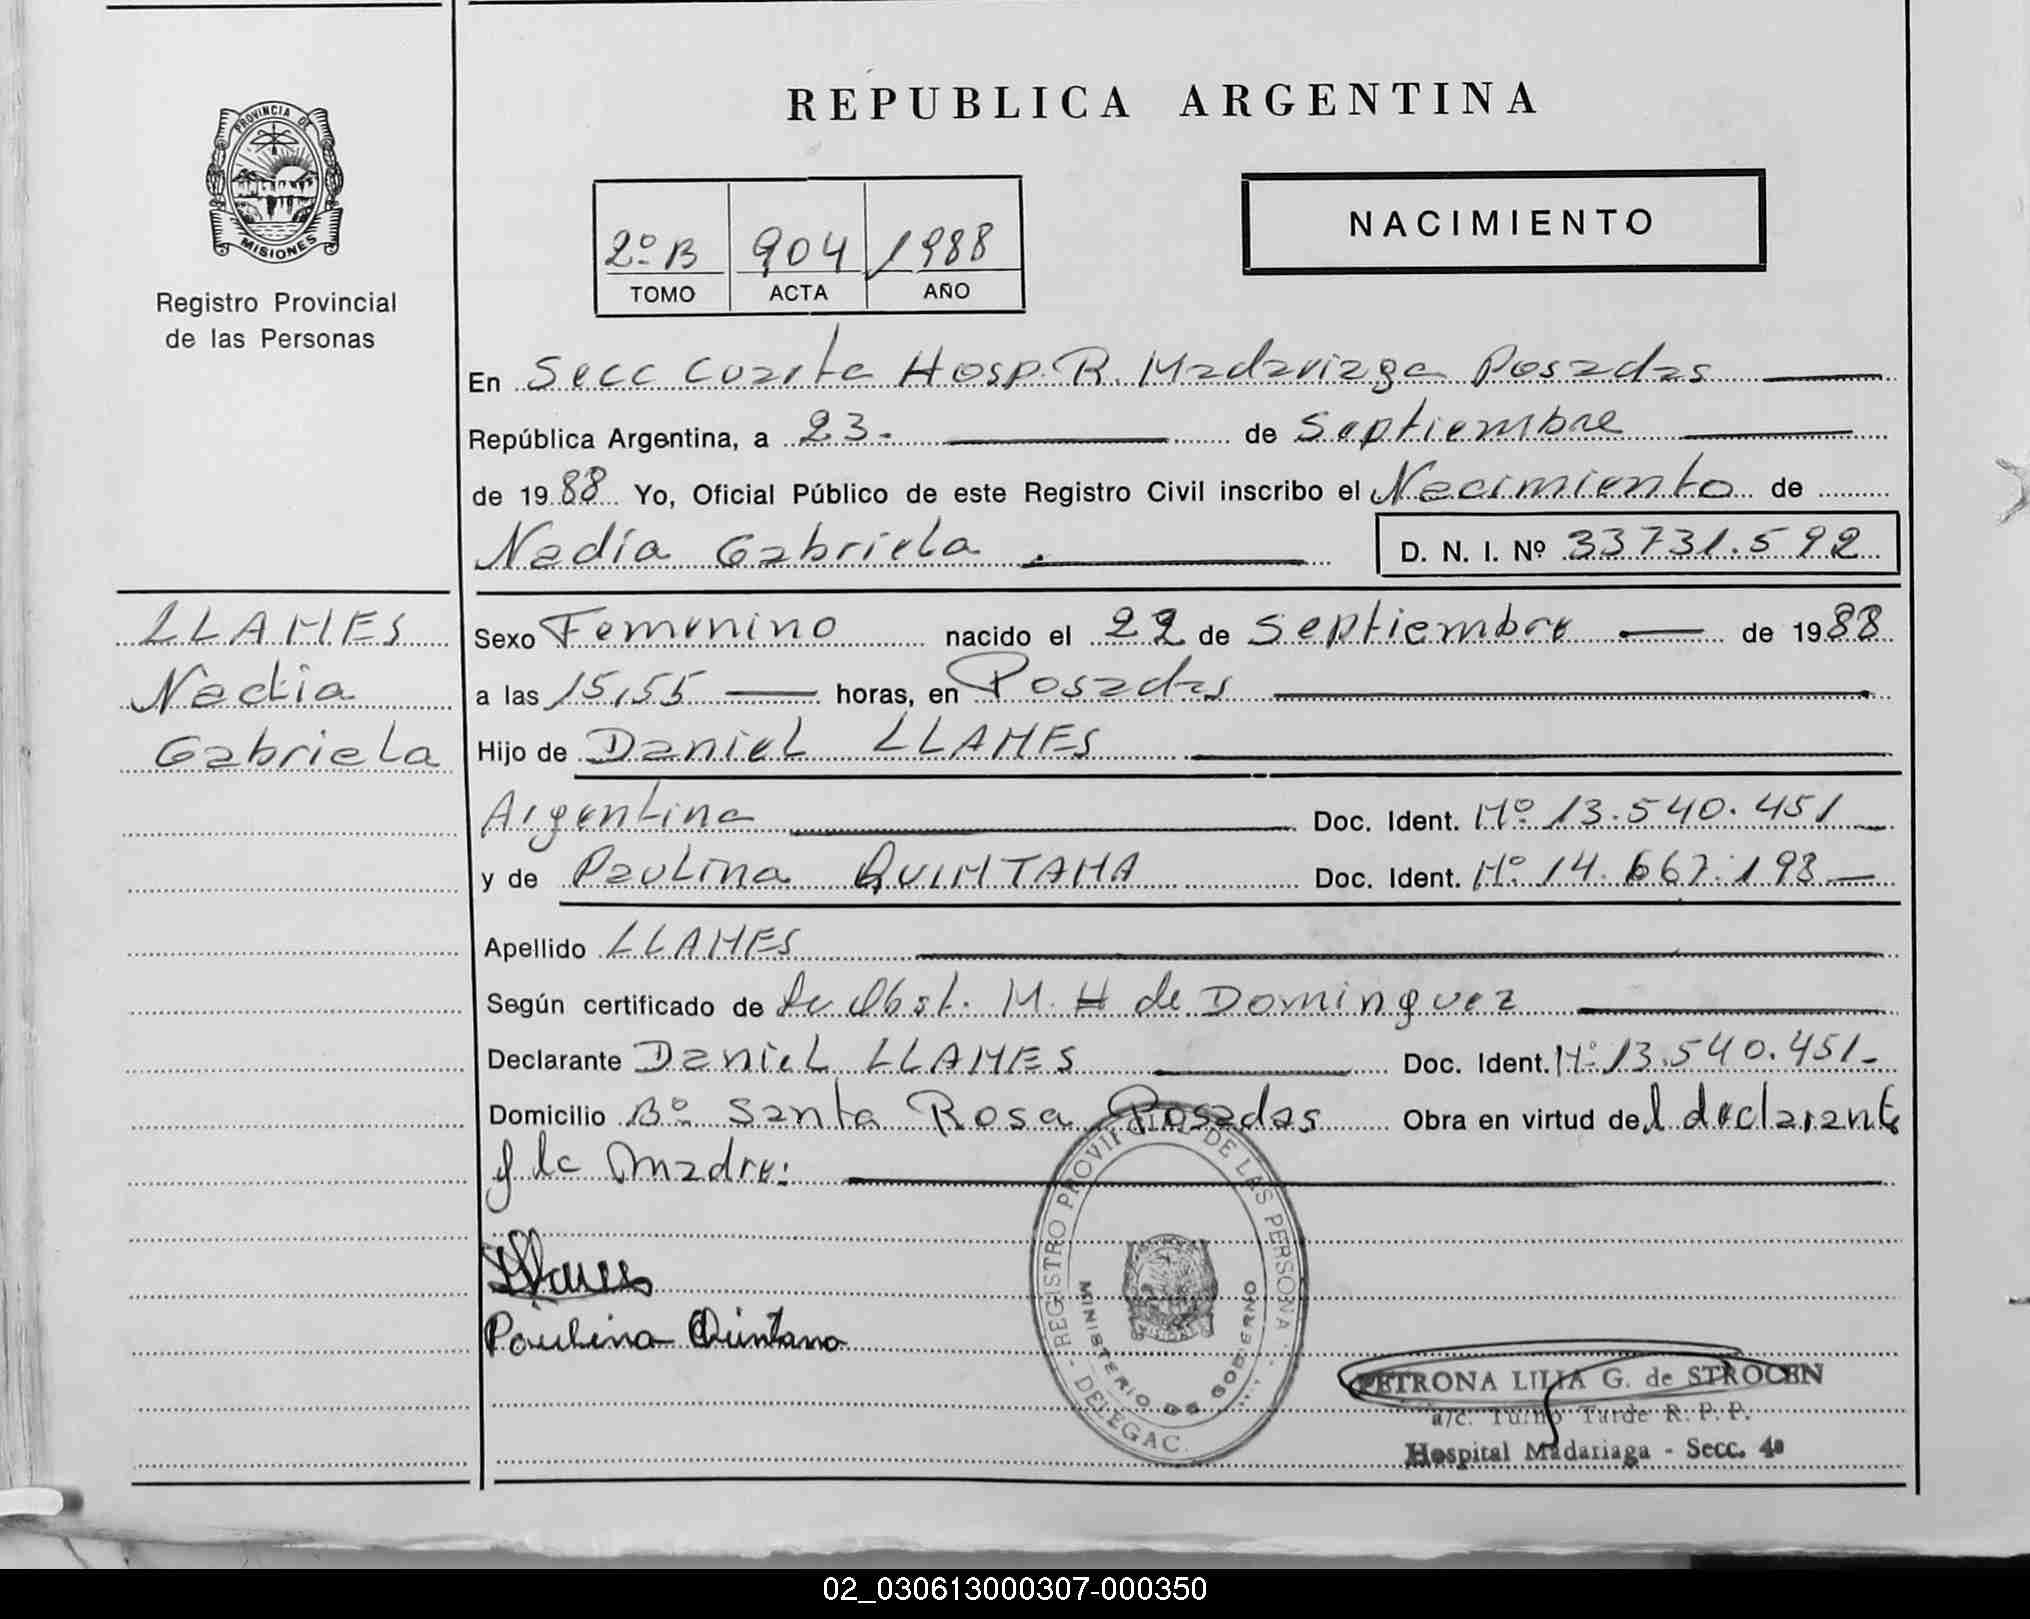 REPUBLICA ARGENTINA
PROVINCIA DE
MISIONES
Registro Provincial
de las Personas
2º B 904 1988
TOMO ACTA AÑO
NACIMIENTO
En Secc Cuarta Hosp. R. Madariaga Posadas
República Argentina, a 23. de Septiembre
de 1988 Yo, Oficial Público de este Registro Civil inscribo el Nacimiento de
Nadia Gabriela . D. N. I. Nº 33731.592
LLAMES
Nadia
Gabriela
Sexo Femenino nacido el 22 de Septiembre de 1988
a las 15,55 horas, en Posadas
Hijo de Daniel LLAMES
Argentina Doc. Ident. Nº 13.540.451
y de Paulina QUINTANA Doc. Ident. Nº 14.667.193
Apellido LLAMES
Según certificado de la Obst. M. H de Dominguez
Declarante Daniel LLAMES Doc. Ident. Nº 13.540.451-
Domicilio Bº Santa Rosa Posadas Obra en virtud del declarante
y la Madre:
Llames
Paulina Quintana
REGISTRO PROVINCIAL DE LAS PERSONA
MINISTERIO DE GOBIERNO
DELEGAC.
PETRONA LILIA G. de STROCEN
a/c. Turno Tarde R. P. P.
Hospital Madariaga - Secc. 4ª
02_030613000307-000350